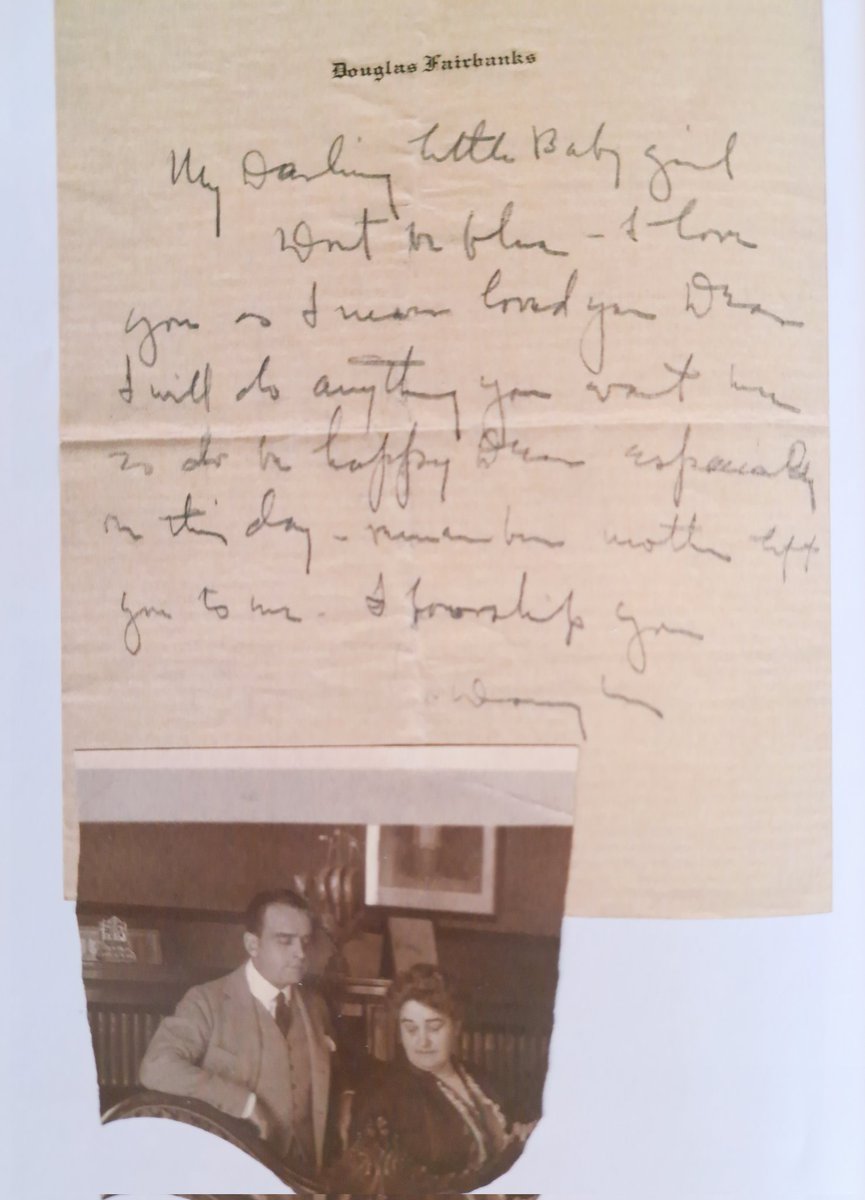 Douglas Fairbanks
My Darling little Baby girl
Dont be blue - I love
you as I never loved you Dear
I will do anything you want me
so do be happy Dear especially
on this day - remember mother left
you to me - I worship you